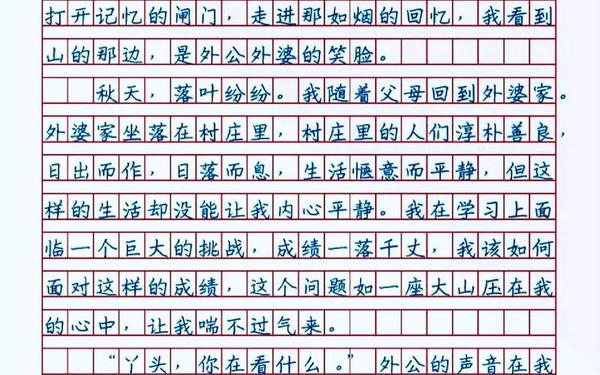 打开记忆的闸门，走进那如烟的回忆，我看到
山的那边，是外公外婆的笑脸。
秋天，落叶纷纷。我随着父母回到外婆家。
外婆家坐落在村庄里，村庄里的人们淳朴善良，
日出而作，日落而息，生活惬意而平静，但这
样的生活却没能让我内心平静。我在学习上面
临一个巨大的挑战，成绩一落千丈，我该如何
面对这样的成绩，这个问题如一座大山压在我
的心中，让我喘不过气来。
“丫头，你在看什么。”外公的声音在我